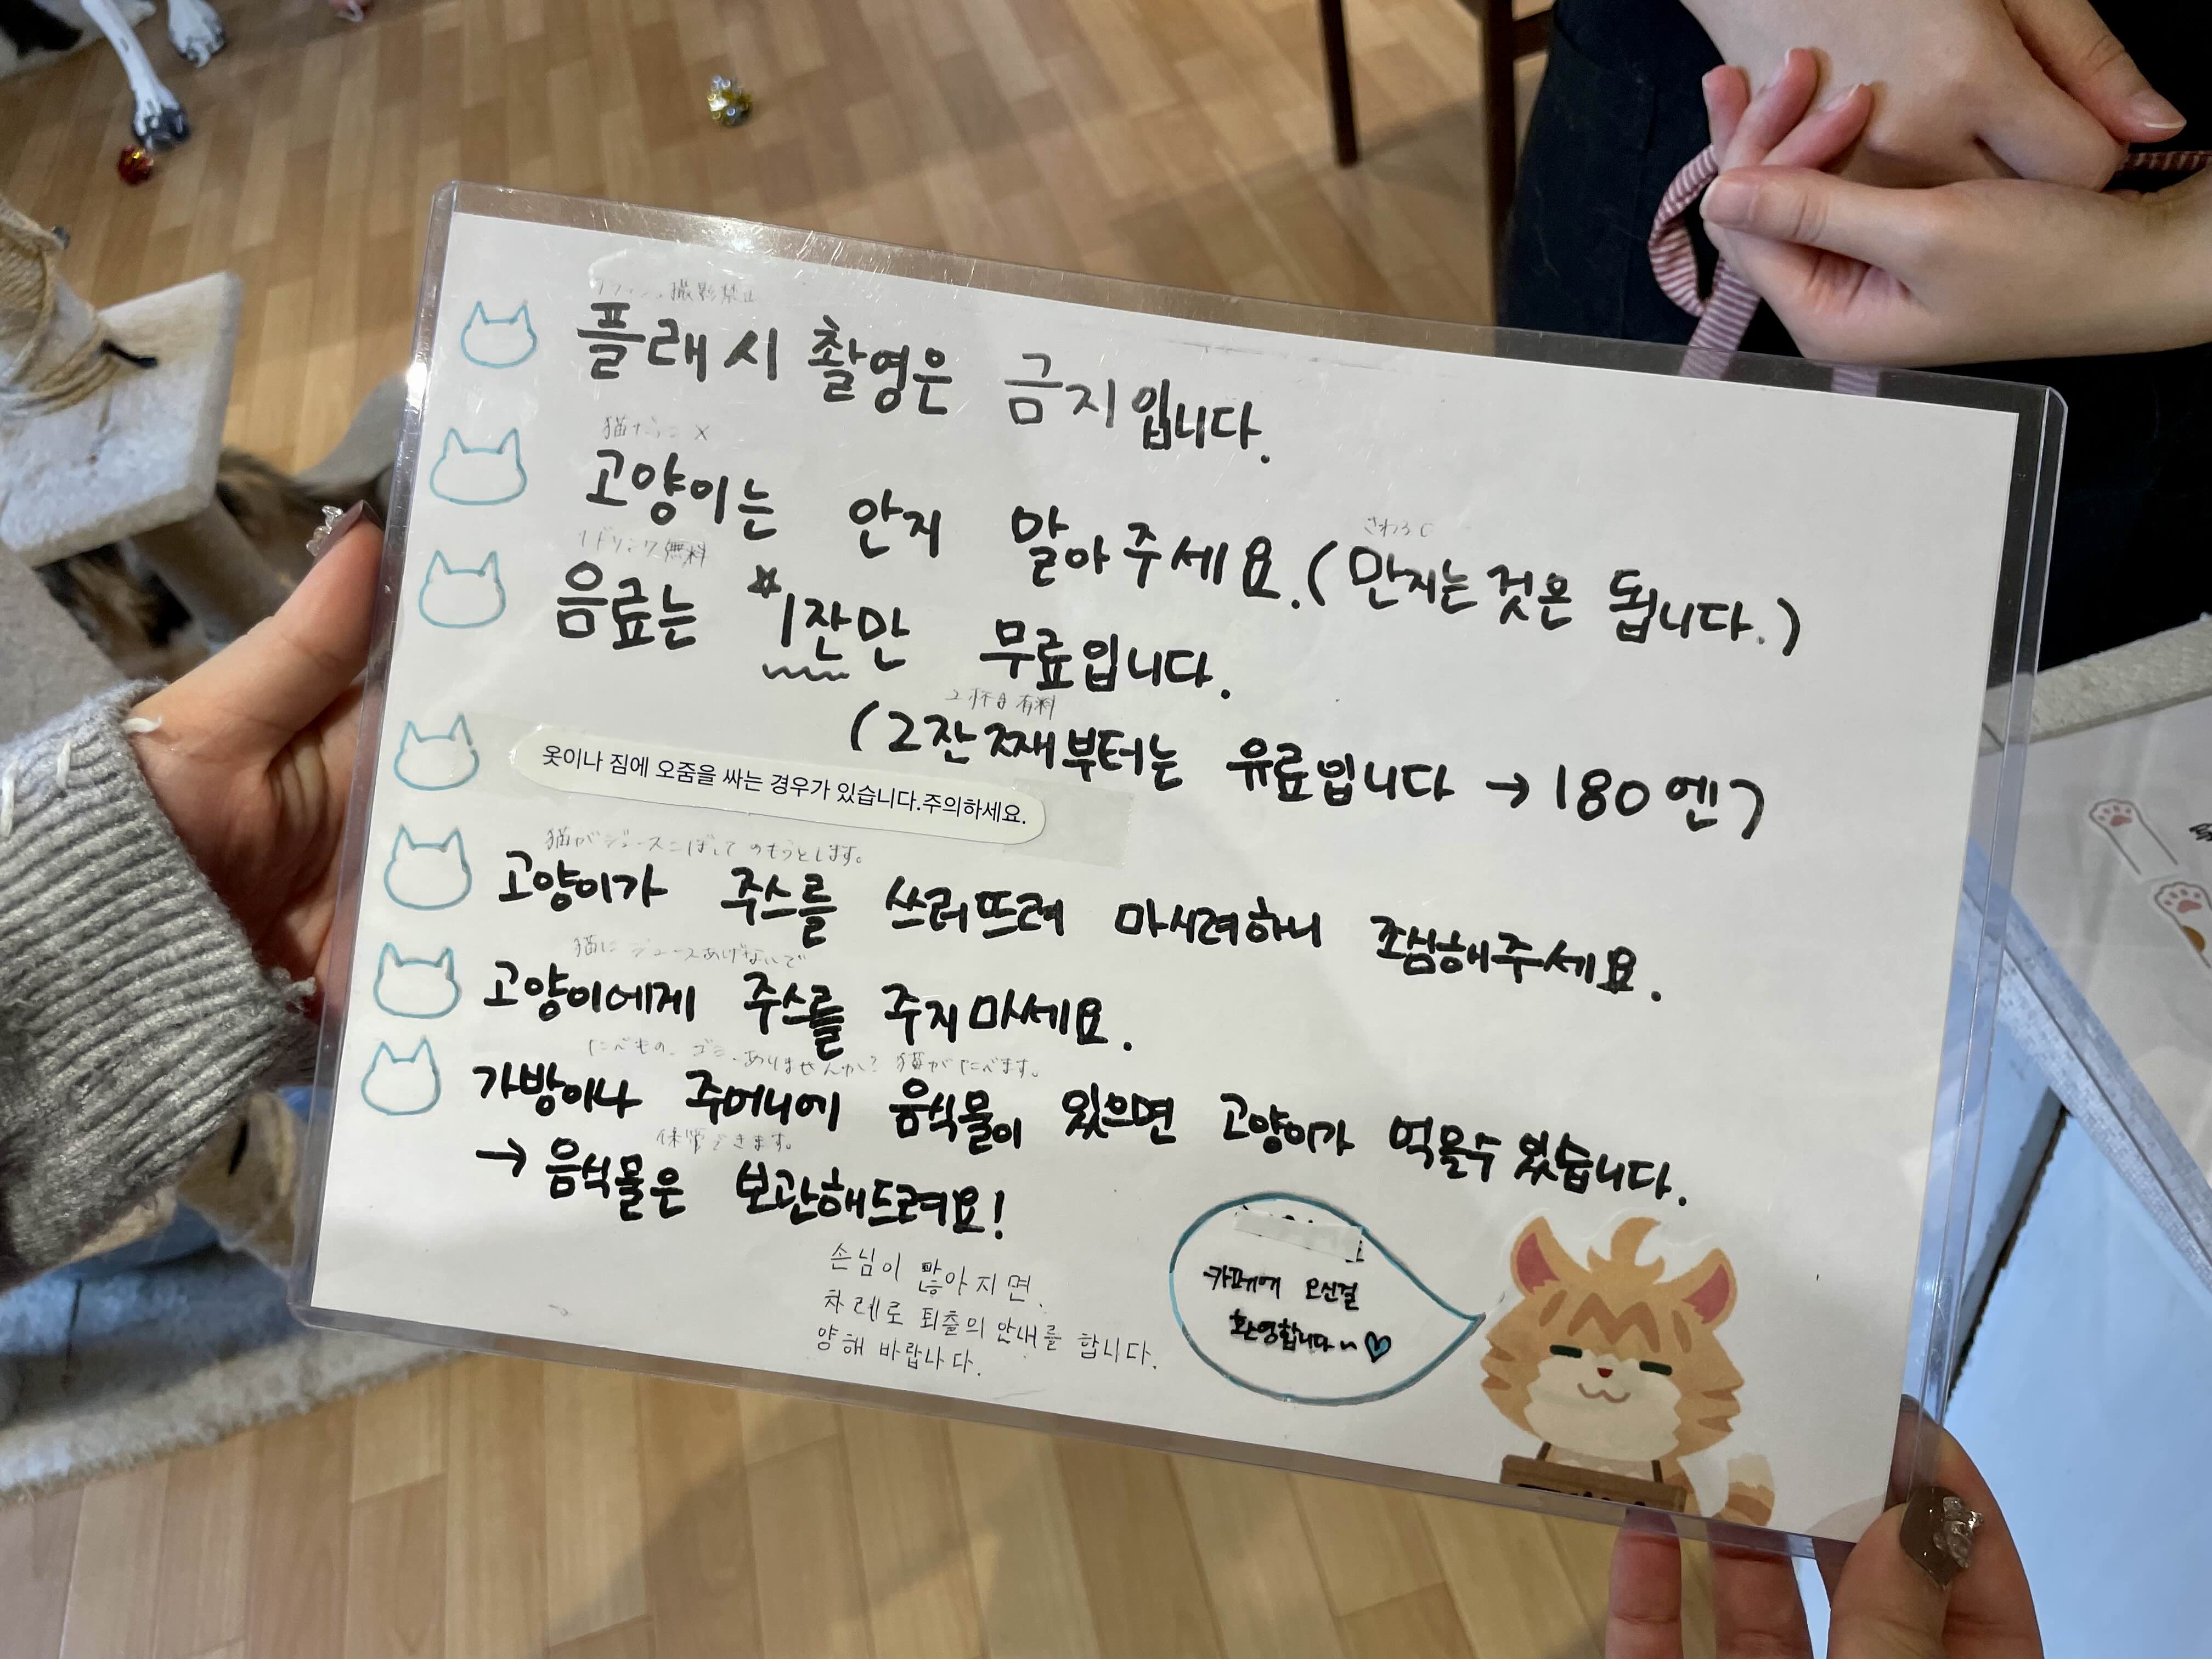 撮影禁止
플래시 촬영은 금지입니다.
猫だっこ X
고양이는 안지 말아주세요.(만지는것은 됩니다.)
さわる○
1ドリンク無料
음료는 *1잔만 무료입니다.
2杯目有料
(2잔째부터는 유료입니다 → 180엔)
옷이나 짐에 오줌을 싸는 경우가 있습니다.주의하세요.
猫がジュースこぼしてのもうとします。
고양이가 주스를 쓰러뜨려 마시려하니 조심해주세요.
猫にジュースあげないで
고양이에게 주스를 주지마세요.
たべもの、ゴミ、ありませんか? 猫がたべます。
가방이나 주머니에 음식물이 있으면 고양이가 먹을수있습니다.
保管できます。
→ 음식물은 보관해드려요!
손님이 많아지면.
차례로 퇴출의 안내를 합니다.
양해 바랍나다.
카페에 오신걸
환영합니다~♡